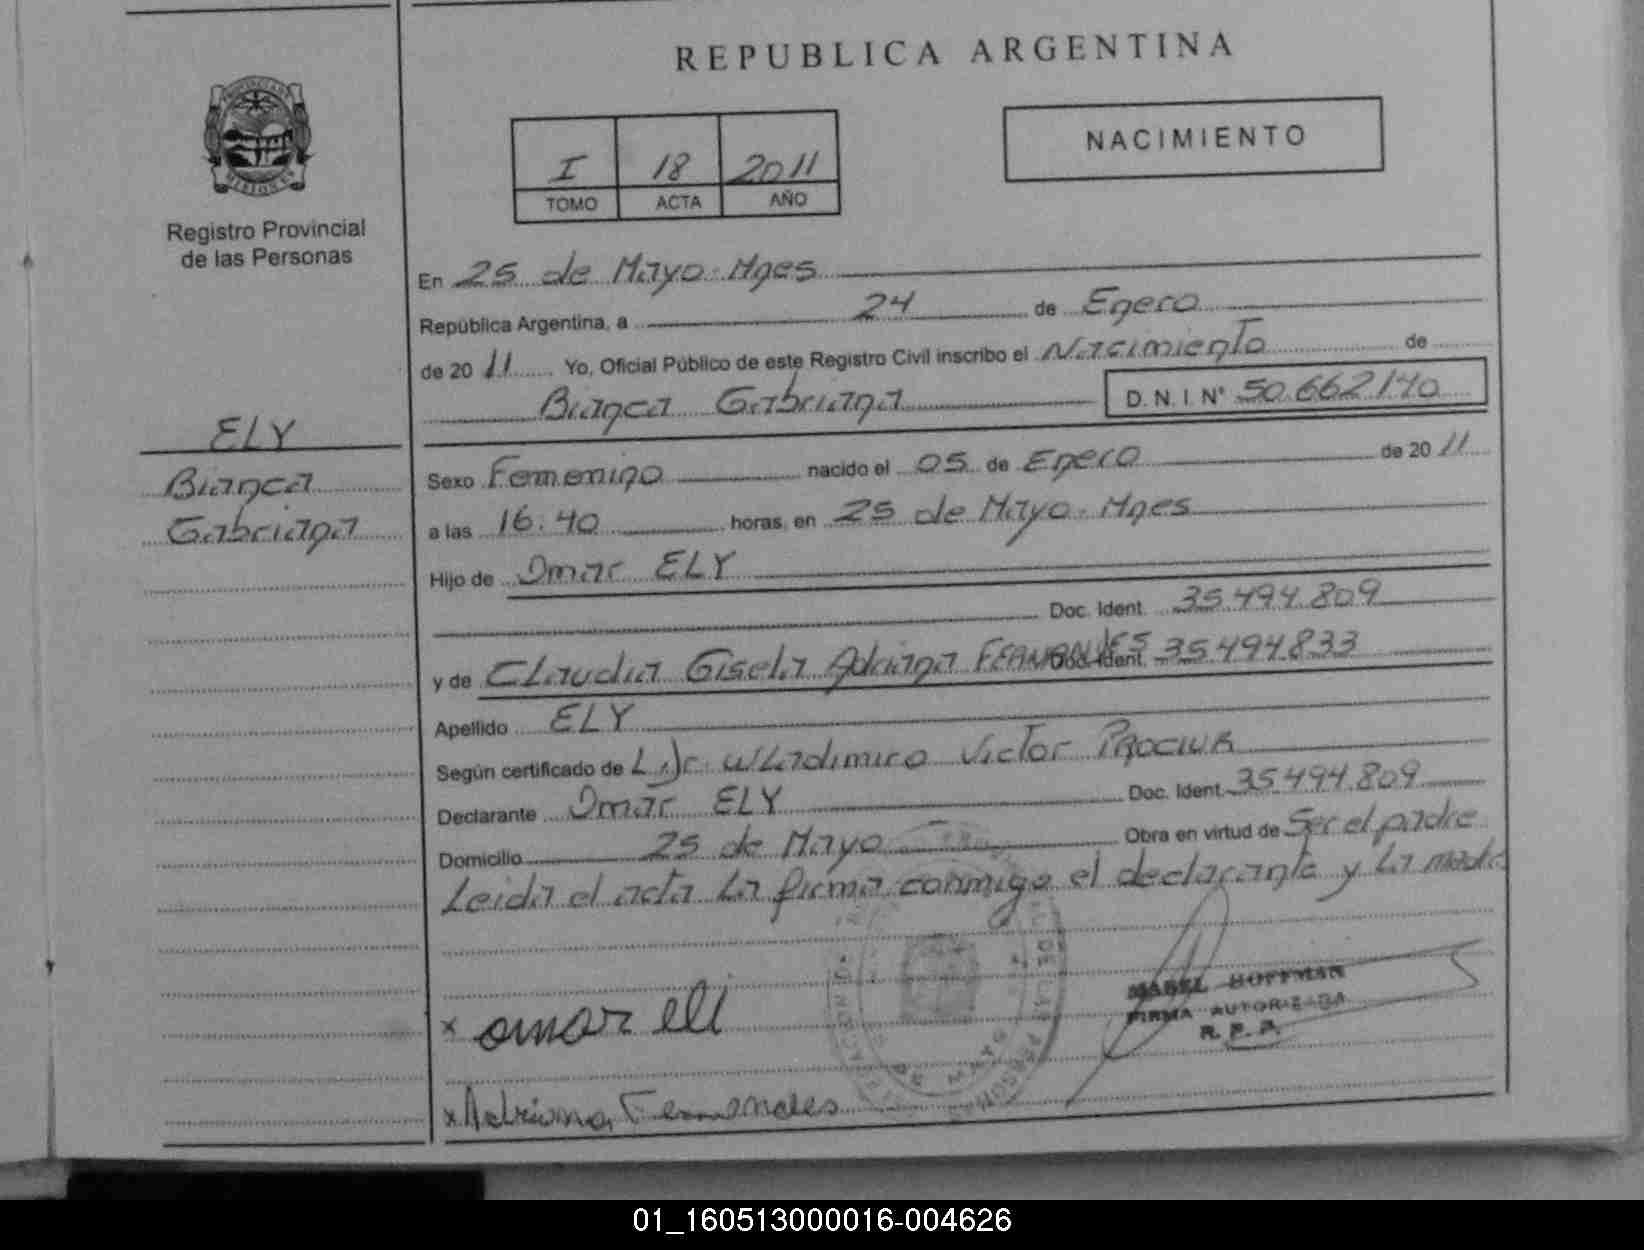 REPUBLICA ARGENTINA
NACIMIENTO
I 18 2011
TOMO ACTA AÑO
MISIONES
Registro Provincial
de las Personas
ELY
Bianca
Gabriana
En 25 de Mayo. Mnes
República Argentina, a 24 de Enero
de 2011 Yo, Oficial Público de este Registro Civil inscribo el Nacimiento de
Bianca Gabriana D. N. I. N° 50.662.140
Sexo Femenino nacido el 05 de Enero de 2011
a las 16:40 horas, en 25 de Mayo. Mnes
Hijo de Omar ELY
Doc. Ident. 35.494.809
y de Claudia Gisela Adriana FERNANDES Doc. Ident. 35.494.833
Apellido ELY
Según certificado de L Dr. Wladimiro Victor PROCIUK
Declarante Omar ELY Doc. Ident. 35.494.809
Domicilio 25 de Mayo Obra en virtud de Ser el padre
Leida el acta la firma conmigo el declarante y la madre
MABEL HOFFMAN
FIRMA AUTORIZADA
R. P. P.
x omar eli
x Adriana Fernandes
01_160513000016-004626